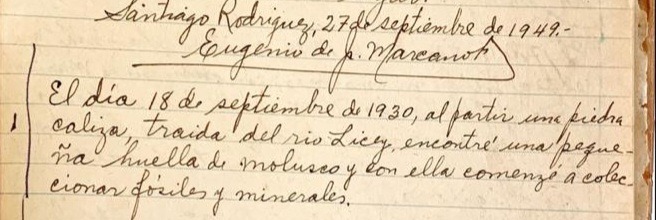 Santiago Rodriguez, 27 de septiembre de 1949.-
Eugenio de J. Marcano
El día 18 de septiembre de 1930, al partir una piedra
caliza, traida del rio Licey, encontré una peque-
ña huella de molusco y con ella comenzé a colec-
cionar fósiles y minerales.